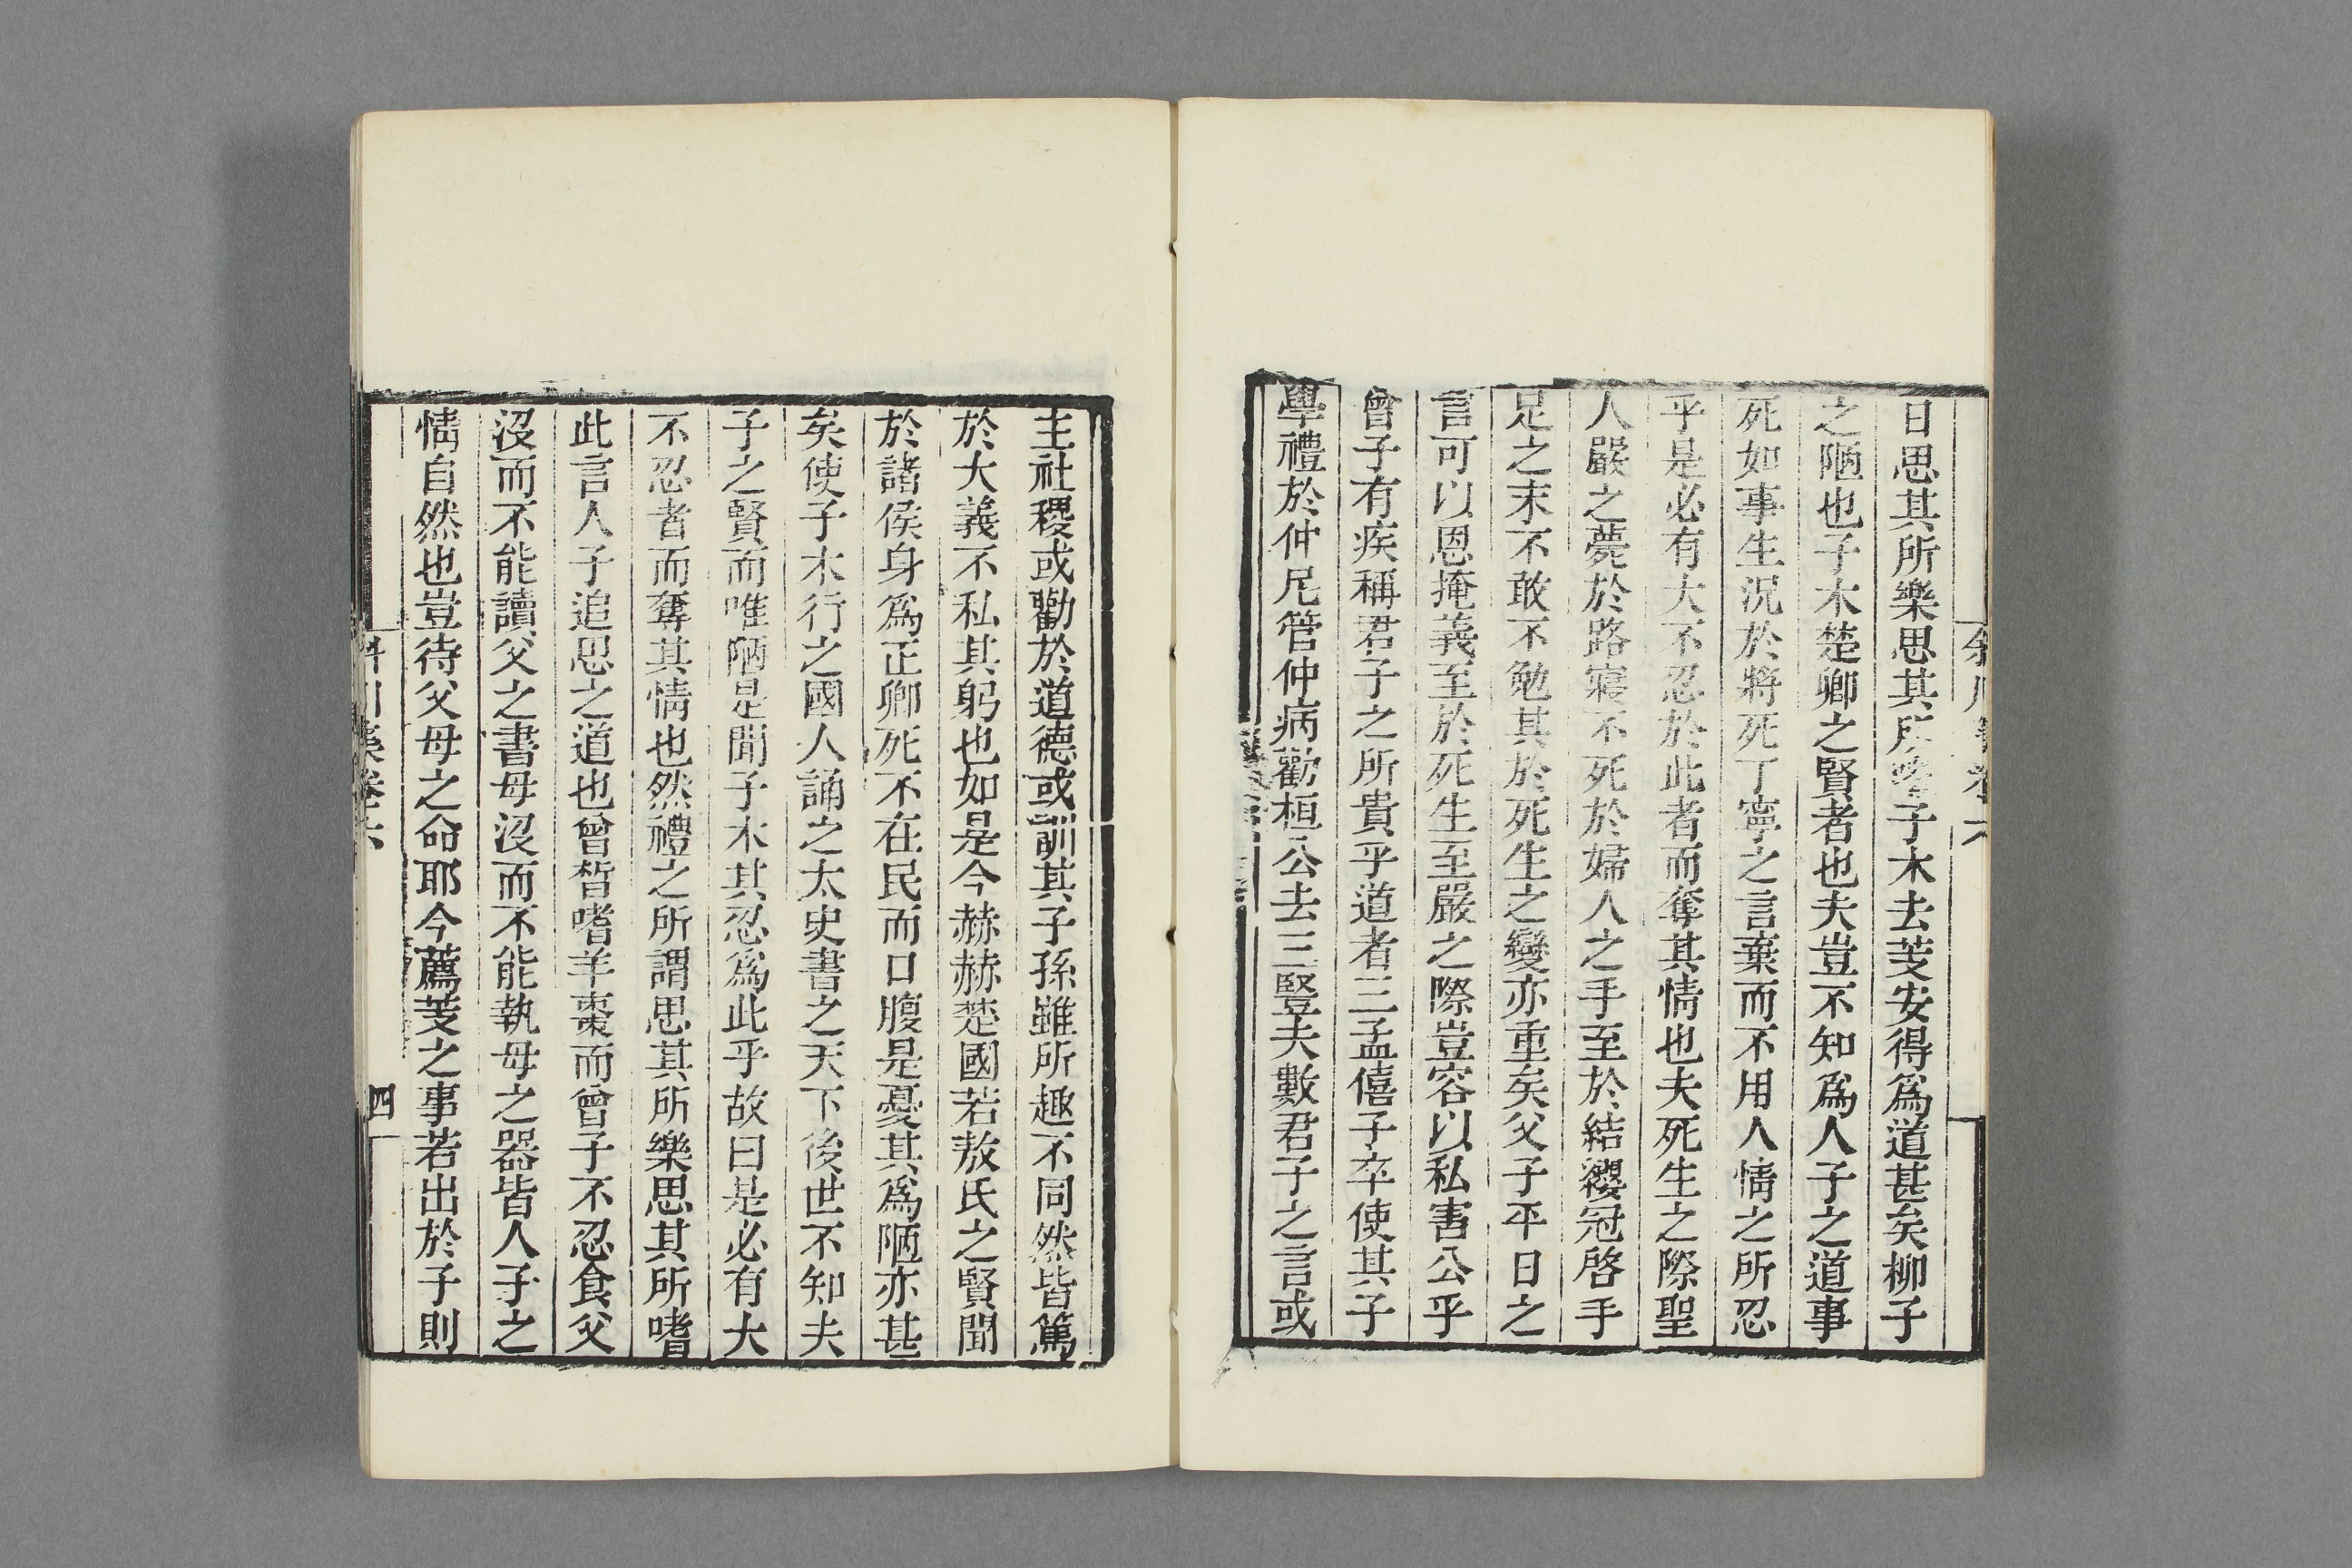 日思其所樂思其所嗜子木去芰安得爲道甚矣柳子
之陋也子木楚卿之賢者也夫豈不知爲人子之道事
死如事生況於將死丁寧之言棄而不用人情之所忍
乎是必有大不忍於此者而奪其情也夫死生之際聖
人嚴之薨於路寢不死於婦人之手至於結纓冠啓手
足之末不敢不勉其於死生之變亦重矣父子平日之
言可以恩掩義至於死生至嚴之際豈容以私害公乎
曾子有疾稱君子之所貴乎道者三孟僖子卒使其子
學禮於仲尼管仲病勸桓公去三豎夫數君子之言或
主社稷或勸於道德或訓其子孫雖所趣不同然皆篤
於大義不私其躬也如是今赫赫楚國若敖氏之賢聞
於諸侯身爲正卿死不在民而口腹是憂其爲陋亦甚
矣使子木行之國人誦之太史書之天下後世不知夫
子之賢而唯陋是聞子木其忍爲此乎故曰是必有大
不忍者而奪其情也然禮之所謂思其所樂思其所嗜
此言人子追思之道也曾晳嗜羊棗而曾子不忍食父
沒而不能讀父之書母沒而不能執母之器皆人子之
情自然也豈待父母之命耶今薦芰之事若出於子則
卷六
四